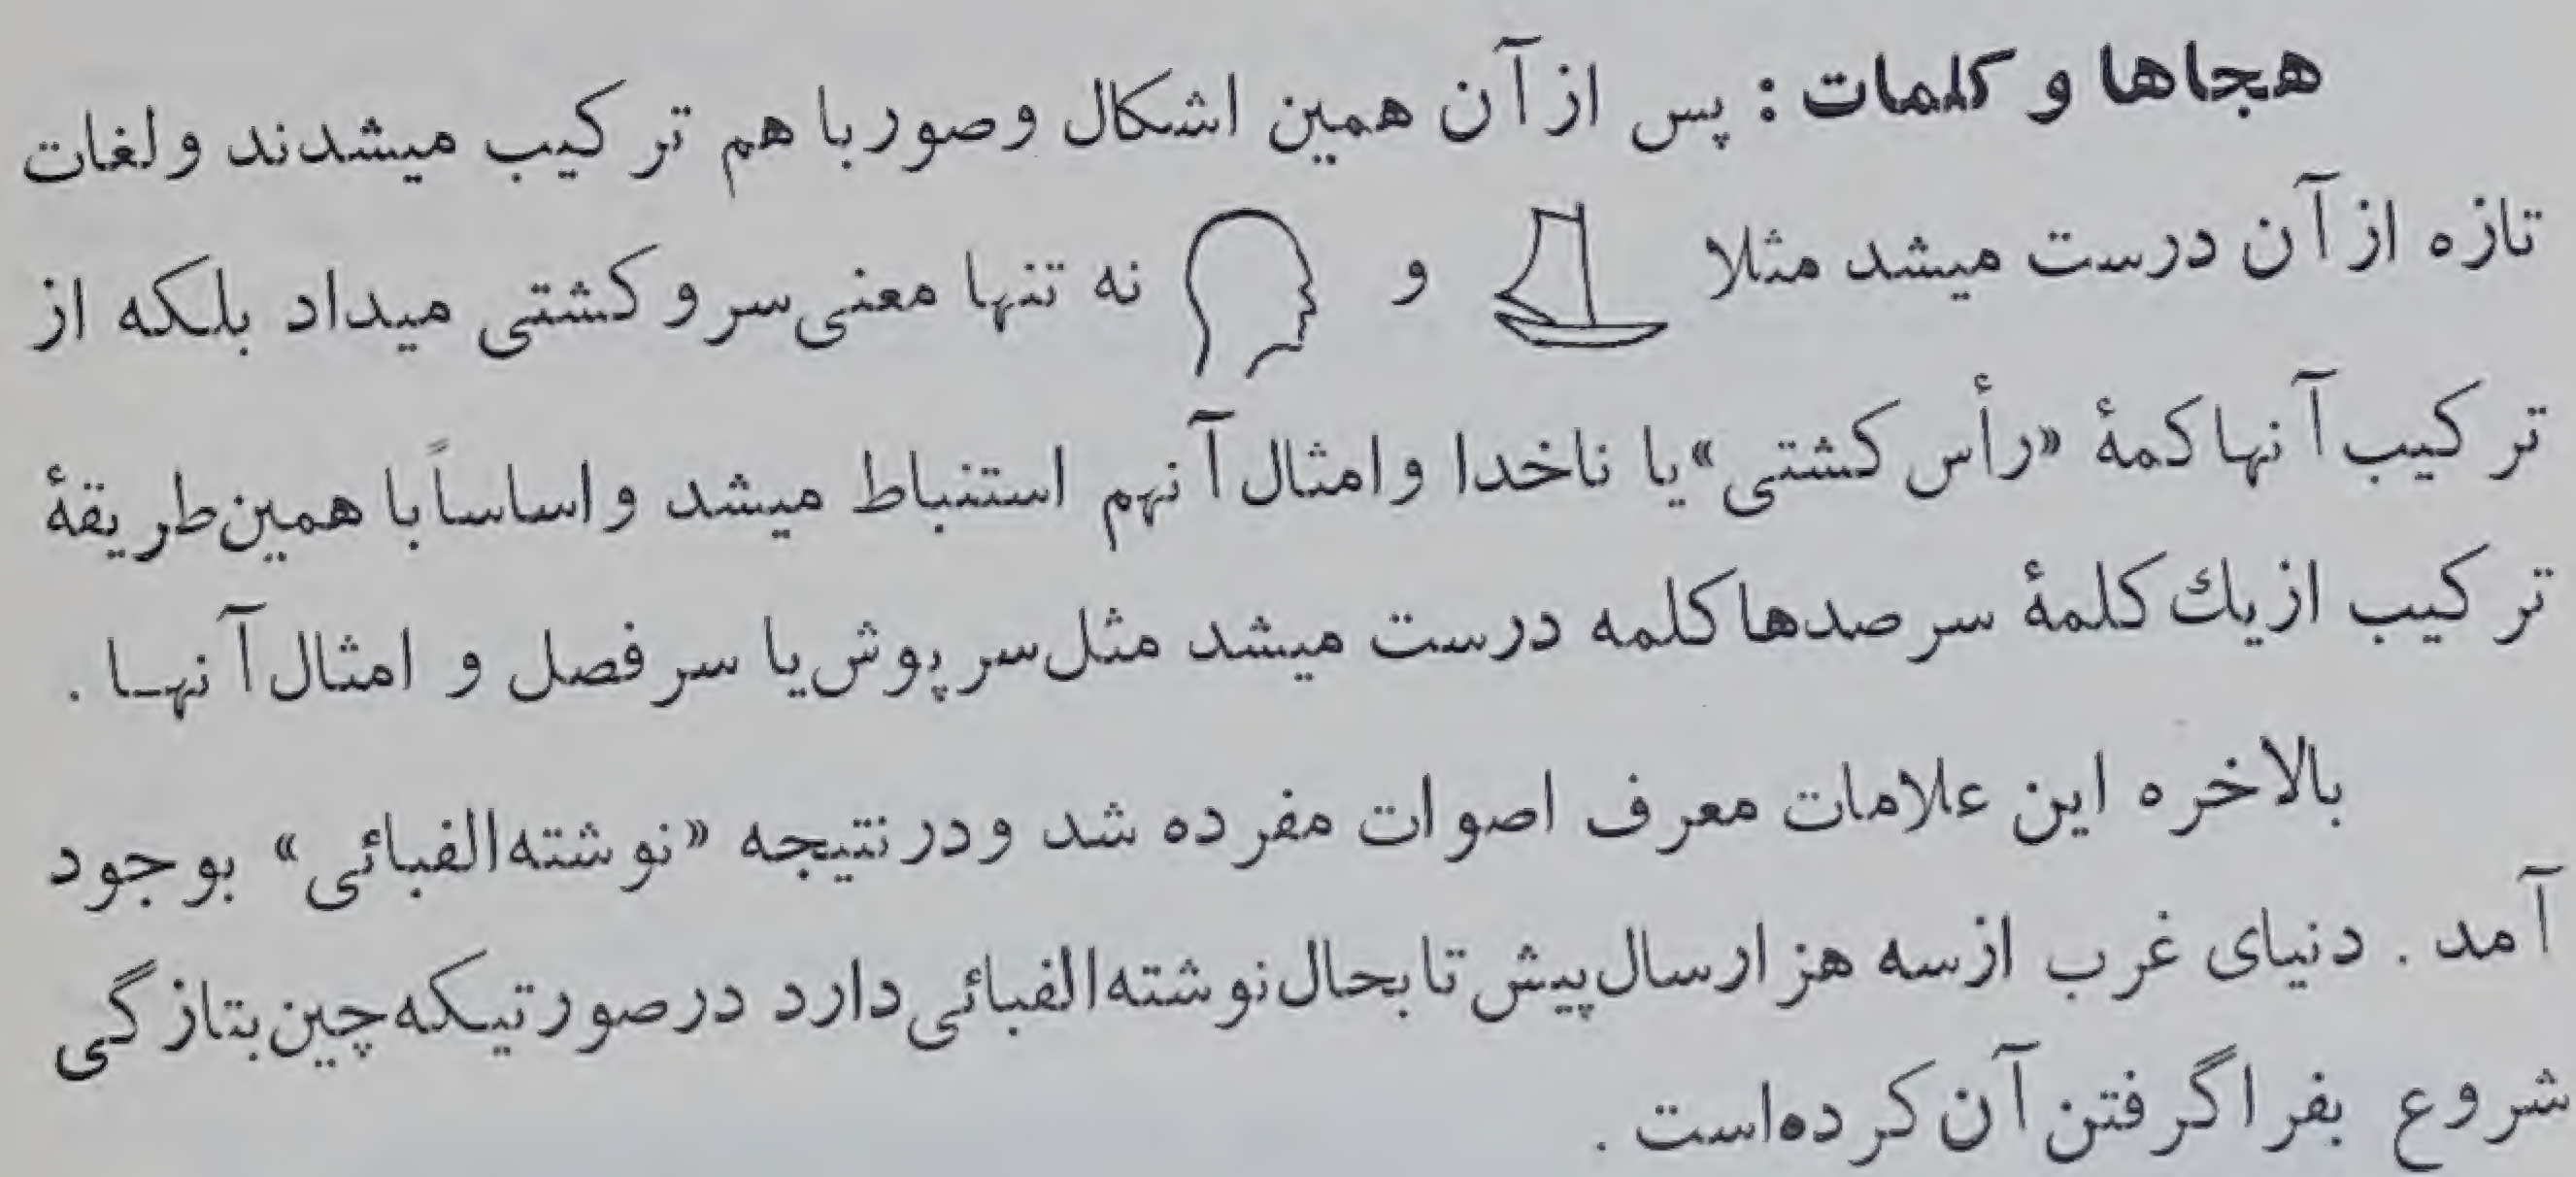 هجاها و کلمات : پس از آن همین اشکال وصور با هم ترکیب میشدند و لغات
تازه از آن درست میشد مثلا و نه تنها معنی سر و کشتی میداد بلکه از
ترکیب آنها کمهٔ «رأس کشتی» یا ناخدا و امثال آنهم استنباط میشد و اساساً با همین طریقهٔ
ترکیب از یك کلمهٔ سر صدها کلمه درست میشد مثل سر پوش یا سر فصل و امثال آنهـا .
بالاخره این علامات معرف اصوات مفرده شد و در نتیجه «نوشته الفبائی» بوجود
آمد . دنیای غرب از سه هزار سال پیش تا بحال نوشته الفبائی دارد در صورتیکه چین بتازگی
شروع بفرا گرفتن آن کرده است .